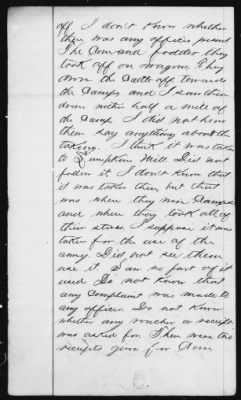 off I don't know whether
there was any officer present
The Corn and fodder they
took off on wagons They
drove the Cattle off towards
the Camps and I saw them
down within half a mile of
the Camp I did not hear
them say anything about the
taking. I think it was taken
to Lumpkins Mill Did not
follow it I don't know that
it was taken there but that
was where they were Camped
and where they took all of
their stores I suppose it was
taken for the use of the
army Did not see them
use it Saw no part of it
used Do not know that
any Complaint was made to
any officer Do not know
whether any voucher or receipt
was asked for There were two
receipts given for Corn